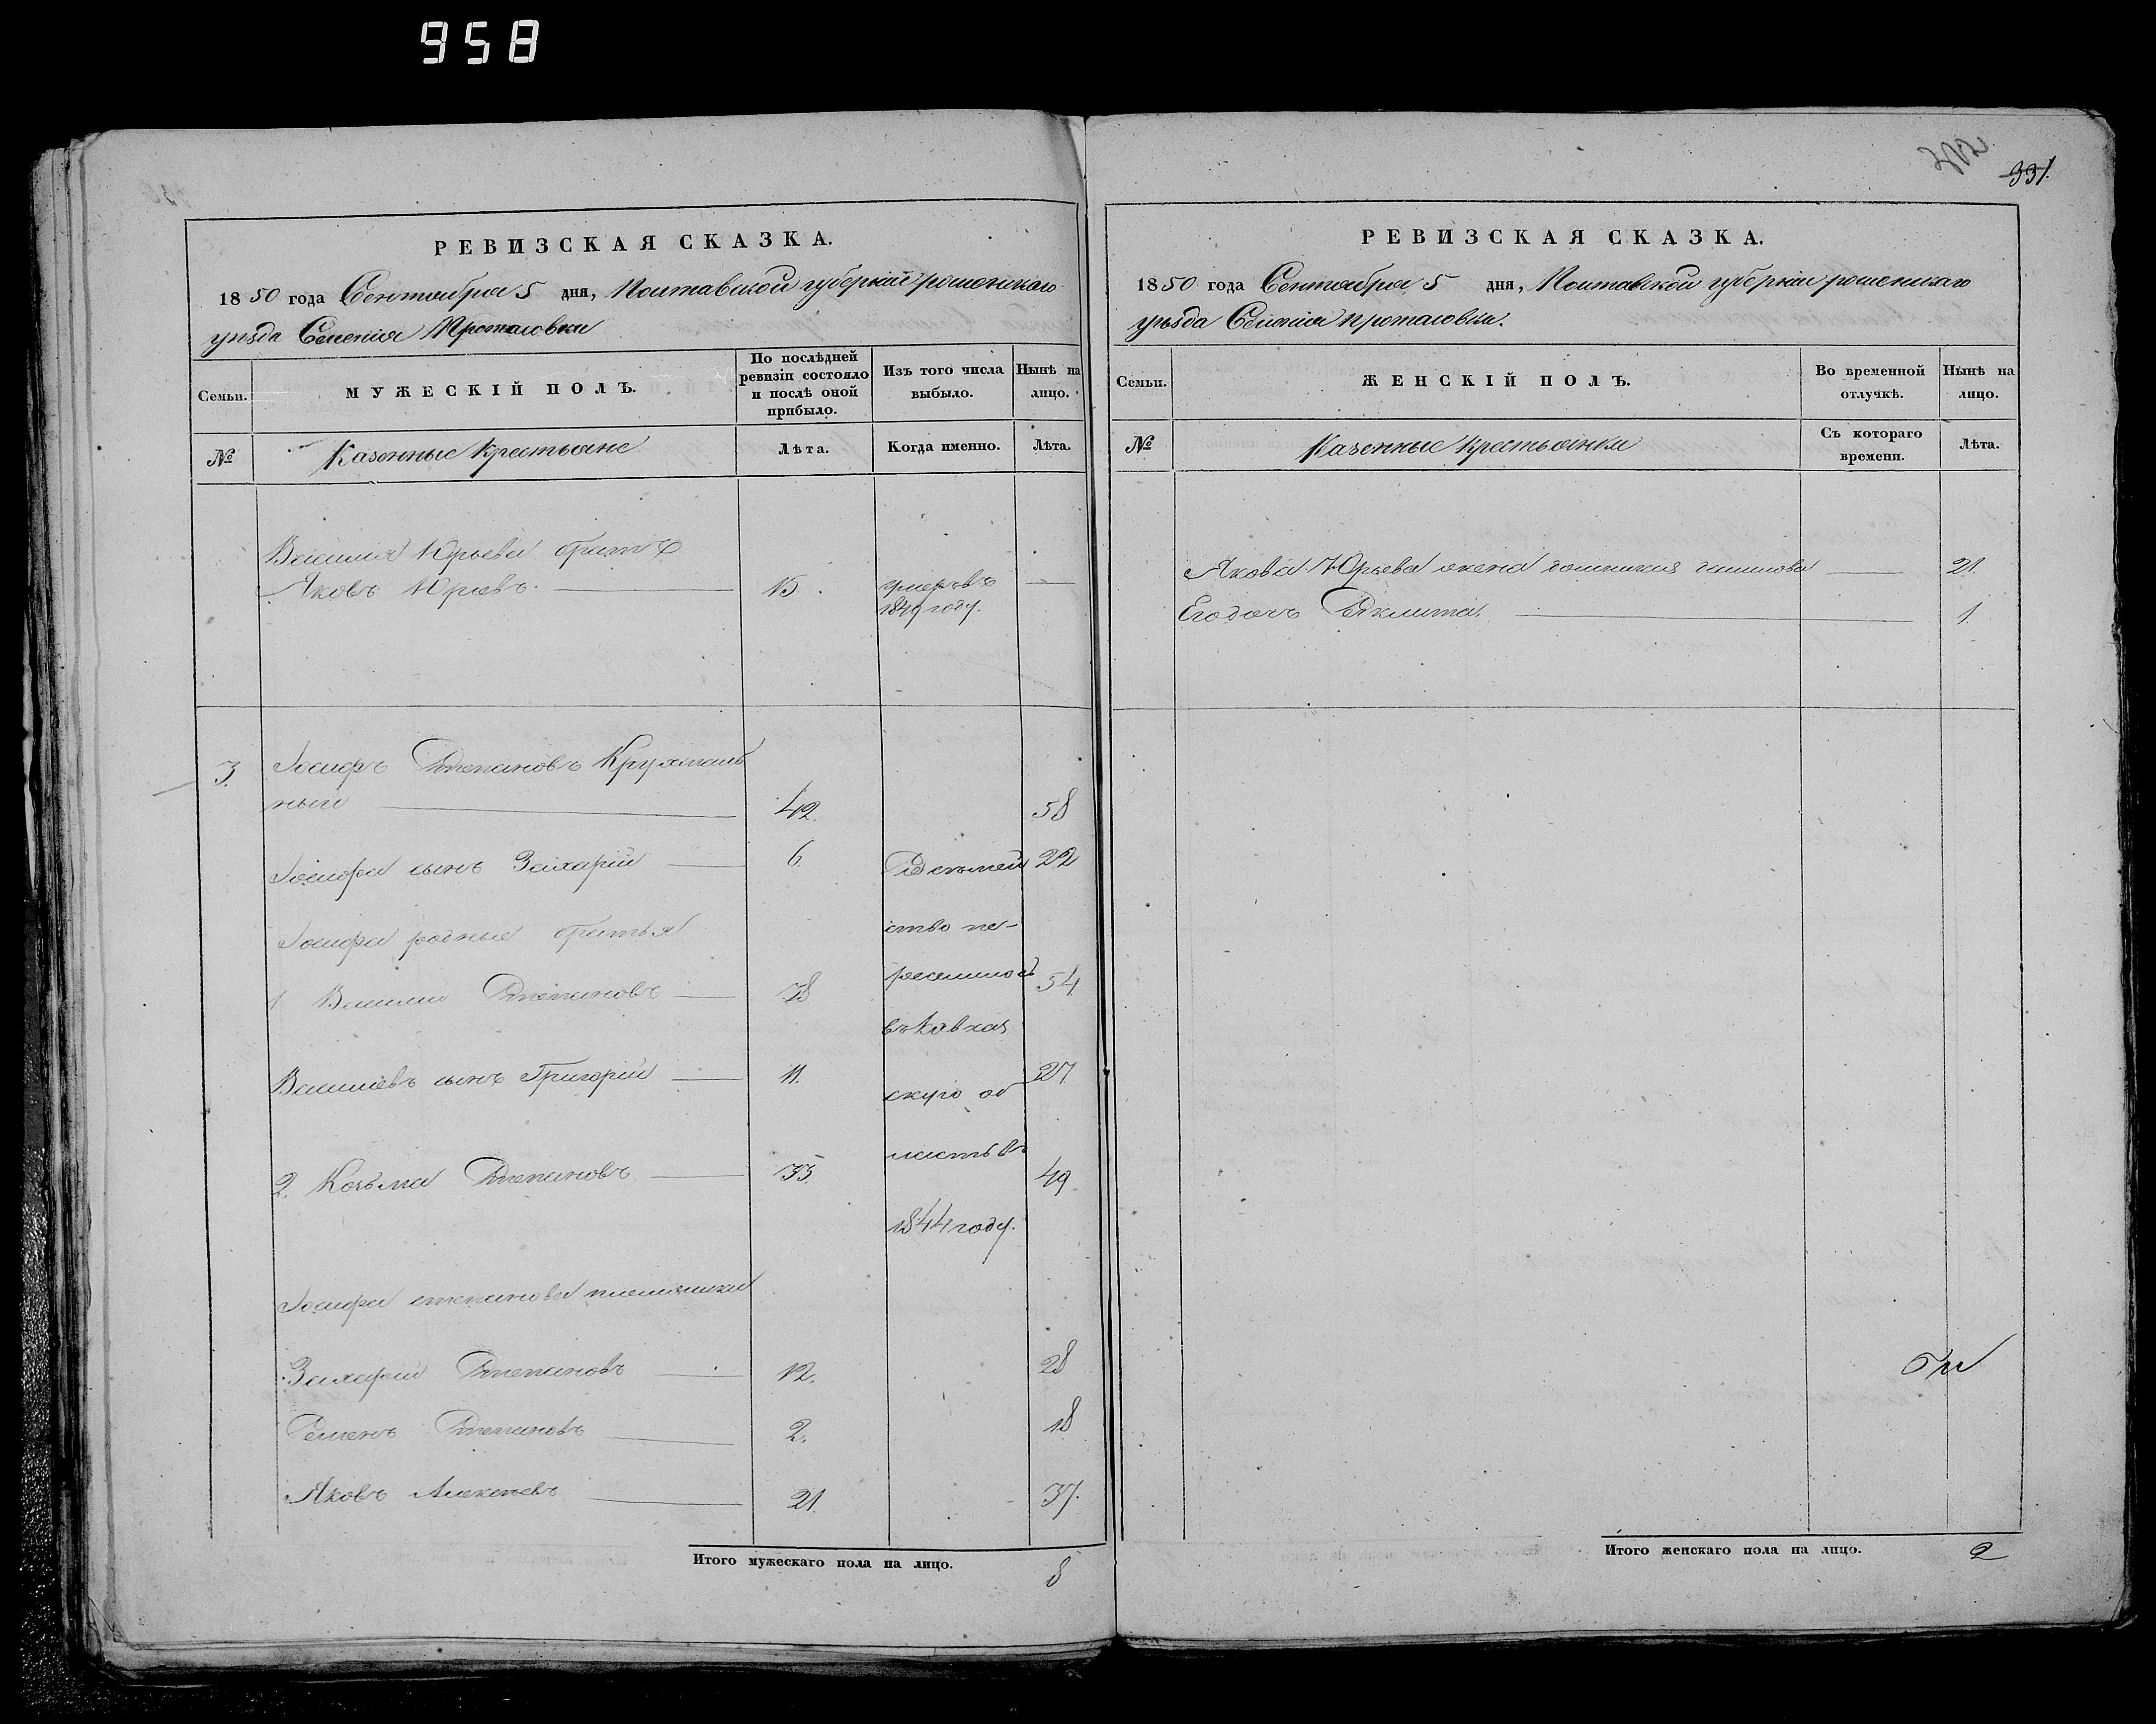 958
331.
РЕВИЗСКАЯ СКАЗКА.
1850 года Сентября 5 дня, Полтавской губернии роменскаго
уезда Селения Протасовки
Семьи.
МУЖЕСКІЙ ПОЛЪ.
По послѣдней ревизіи состояло и послѣ оной прибыло.
Изъ того числа выбыло.
Нынѣ на лицо.
№
Казенные крестьяне
Лѣта.
Когда именно.
Лѣта.
Василия Юрьева братъ
Яковъ Юрьевъ. 15. умеръ въ
184 году.
3. Іосифъ Степановъ
ный 42. 58
Іосифа сынъ Захарій 6 22
Іосифа родные братья
ство пе-
1 Василий Степановъ 38 54
в Кавказ
Васильевъ сынъ Григорій 11. 27
скую об
ласть въ
2. Козьма Степановъ 33. 49
1844 году.
Іосифа степанова племянники
Захарий Степановъ 12. 28
Семенъ Степановъ 2. 18
Яковъ Алексеевъ 21. 37.
Итого мужескаго пола на лицо. 8
РЕВИЗСКАЯ СКАЗКА.
1850 года Сентября 5 дня, Полтавской губернии роменскаго
уезда Селения протасовки.
Семьи.
ЖЕНСКІЙ ПОЛЪ.
Во временной отлучкѣ.
Нынѣ на лицо.
№
Казенные крестьянки
Съ котораго времени.
Лѣта.
Якова Юрьева жена 21.
Его дочь 1.
Итого женскаго пола на лицо. 2